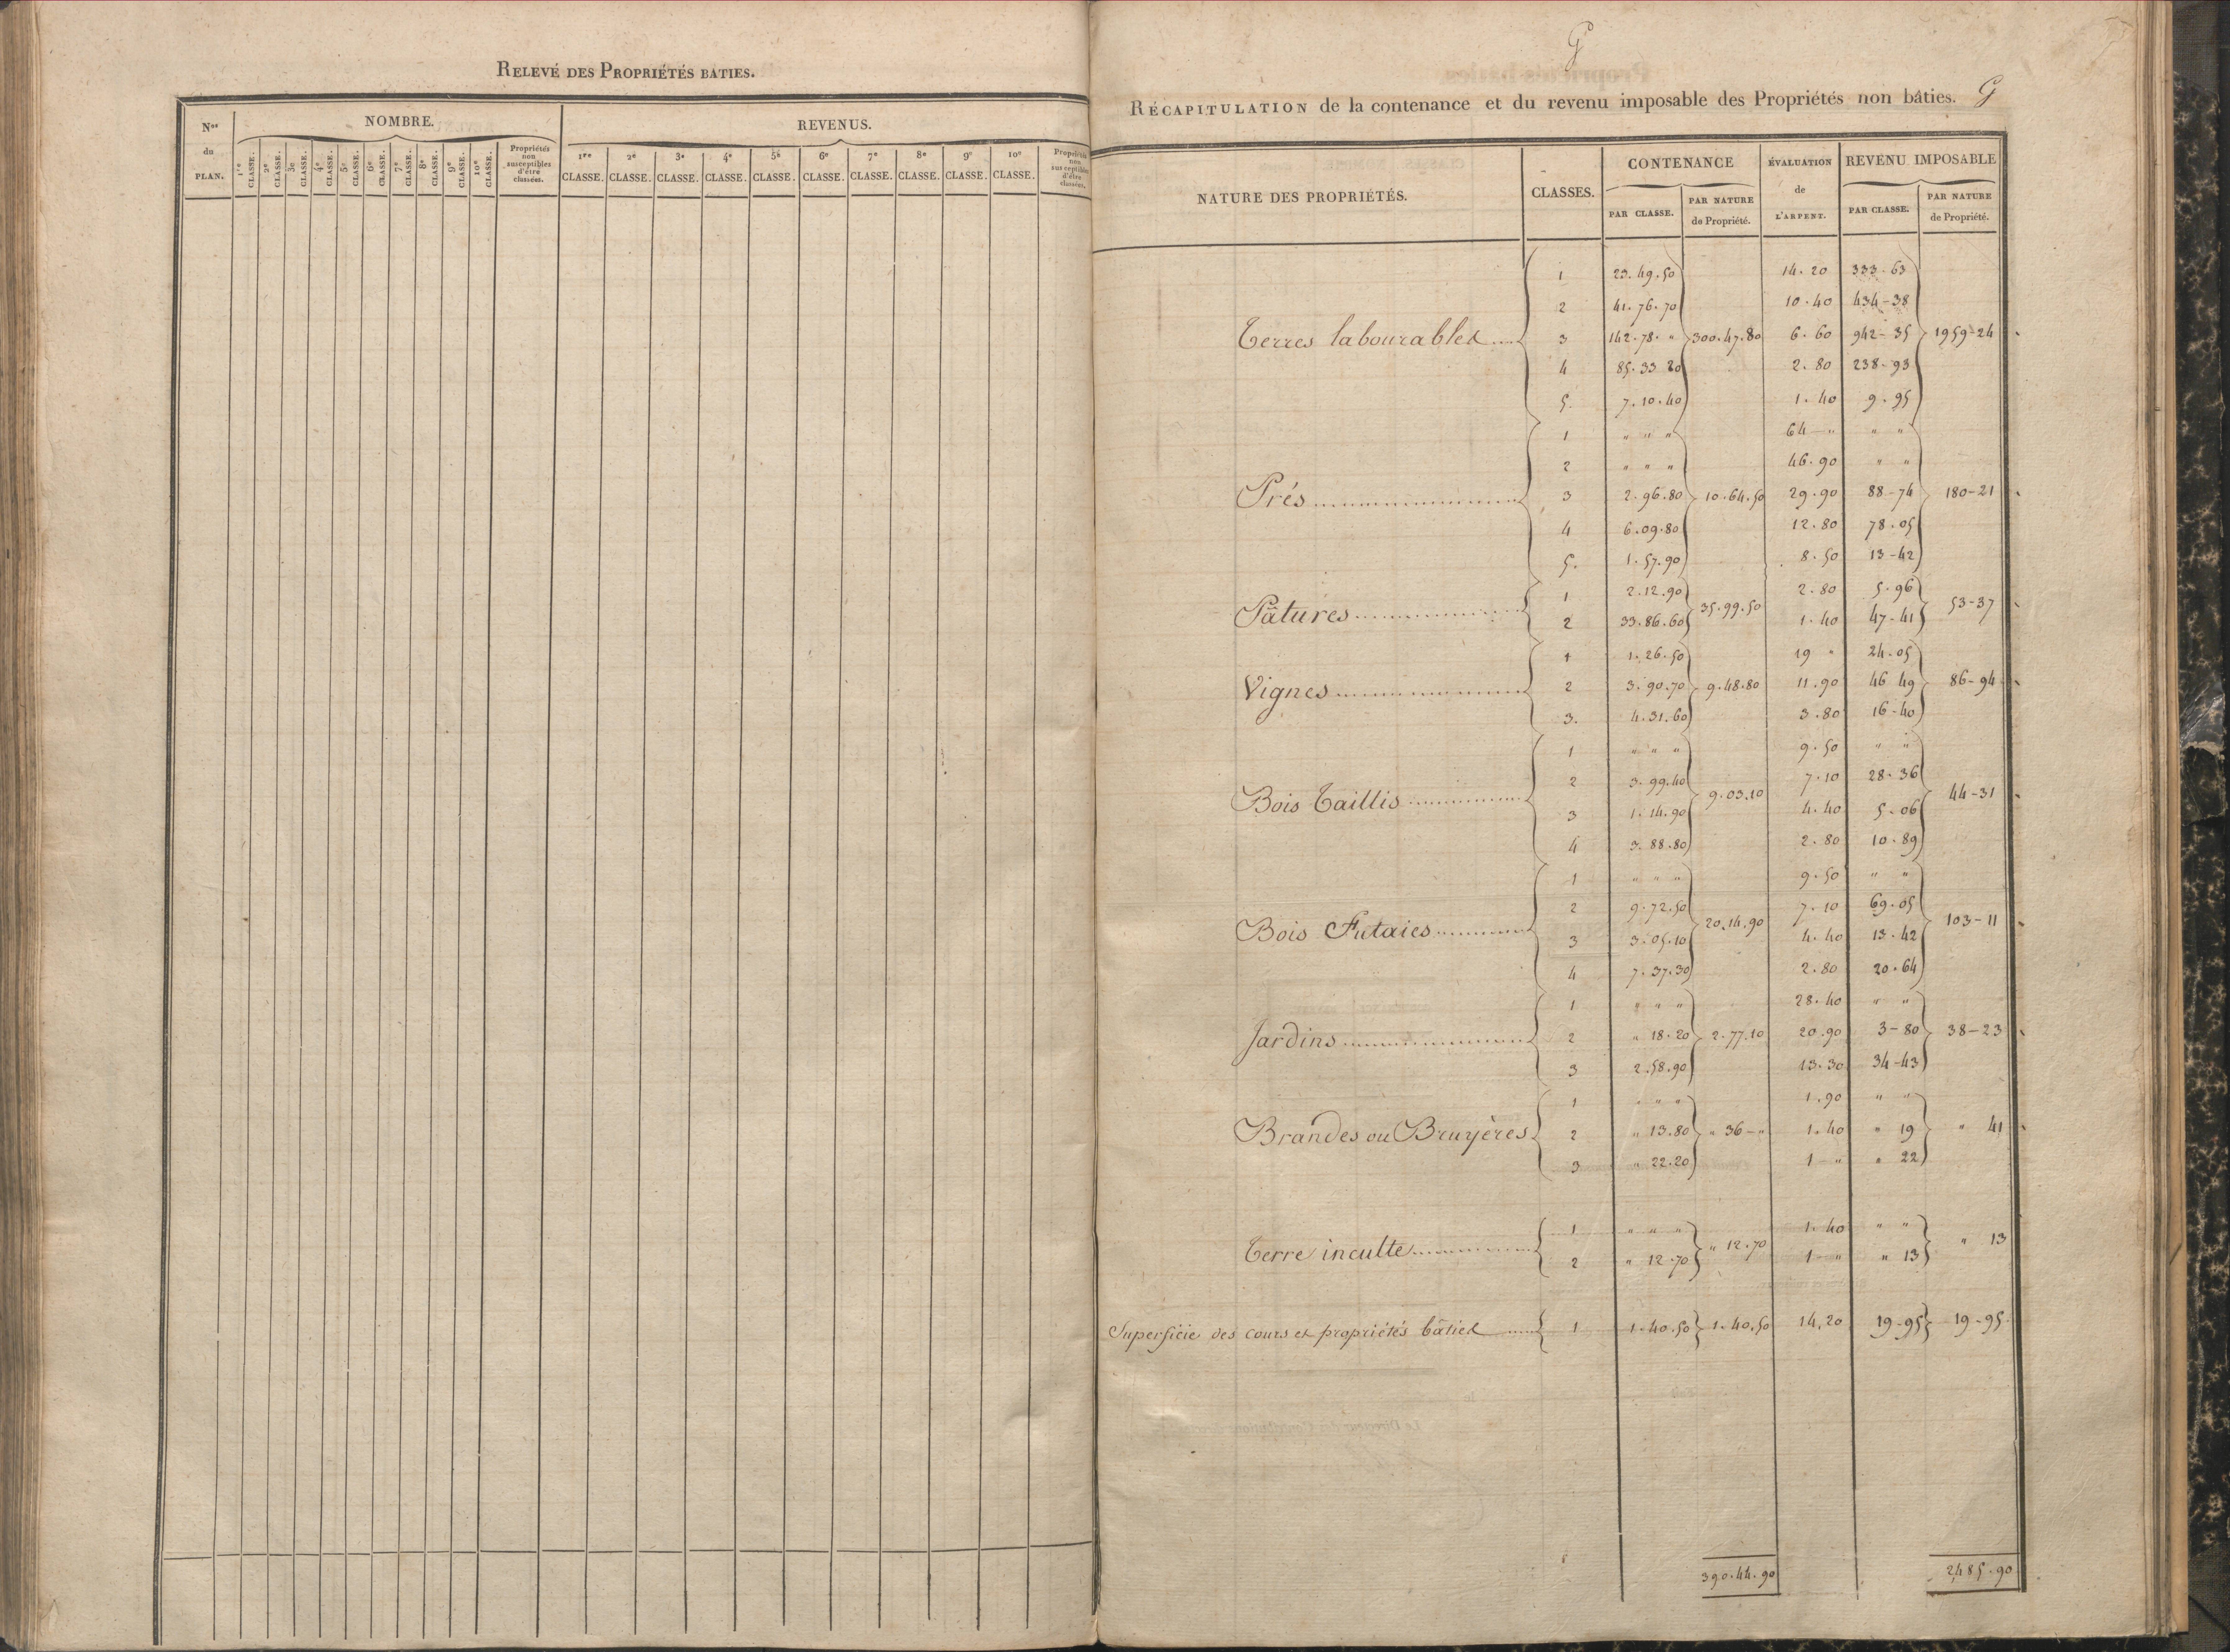 RELEVÉ DES PROPRIÉTÉS BATIES.
Nos du PLAN.
NOMBRE.
REVENUS.
1re CLASSE. 2e CLASSE. 3e CLASSE. 4e CLASSE. 5e CLASSE. 6e CLASSE. 7e CLASSE. 8e CLASSE. 9e CLASSE. 10e CLASSE. Propriétés non susceptibles d'être classées.
1re CLASSE. 2e CLASSE. 3e CLASSE. 4e CLASSE. 5e CLASSE. 6e CLASSE. 7e CLASSE. 8e CLASSE. 9e CLASSE. 10e CLASSE. Propriétés non susceptibles d'être classées.
G
RÉCAPITULATION de la contenance et du revenu imposable des Propriétés non bâties. G
NATURE DES PROPRIÉTÉS. CLASSES. CONTENANCE ÉVALUATION de L'ARPENT. REVENU IMPOSABLE
PAR CLASSE. PAR NATURE de Propriété. PAR CLASSE. PAR NATURE de Propriété.
1 23.49.50 14.20 333.63
2 41.76.70 10.40 434-38
Terres labourables 3 142.78. " 300.47.80 6.60 942-35 1959-24
4 85.33 20 2.80 238-93
5. 7.10.40 1.40 9.95
1 " " " 64 " " "
2 " " " 46.90 " "
Prés 3 2.96.80 10.64.50 29.90 88-74 180-21
4 6.09.80 12.80 78.05
5. 1.57.90 8.50 13-42
1 2.12.90 2.80 5.96
Pâtures 2 33.86.60 35.99.50 1.40 47-41 53-37
1 1.26.50 19 " 24.05
Vignes 2 3.90.70 9.48.80 11.90 46 49 86-94
3. 4.31.60 3.80 16-40
1 " " " 9.50 " "
2 3.99.40 7.10 28.36
Bois Taillis 9.03.10 44-31
3 1.14.90 4.40 5-06
4 3.88.80 2.80 10.89
1 " " " 9.50 " "
2 9.72.50 7.10 69.05
Bois Futaies 20.14.90 103-11
3 3.05.10 4.40 13.42
4 7.37.30 2.80 20.64
1 " " " 28.40 " "
Jardins 2 " 18.20 2.77.10 20.90 3-80 38-23
3 2.58.90 13.30 34-43
1 " " " 1.90 " "
Brandes ou Bruyères 2 " 13.80 " 36 - " 1.40 " 19 " 41
3 " 22.20 1 " " 22
1 " " " 1.40 " "
Terre inculte " 12.70 " 13
2 " 12.70 1 " " 13
Superficie des cours et propriétés bâties 1 1.40.50 1.40.50 14,20 19-95 19-95
390.44.90 2485.90